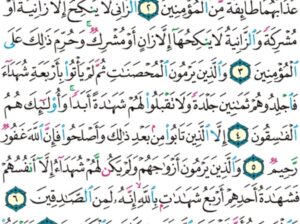 عَذَابَهُمَا طَآئِفَةٌ مِّنَ ٱلْمُؤْمِنِينَ ٢ ٱلزَّانِى لَا يَنكِحُ إِلَّا زَانِيَةً أَوْ
مُشْرِكَةً وَٱلزَّانِيَةُ لَا يَنكِحُهَآ إِلَّا زَانٍ أَوْ مُشْرِكٌ ۚ وَحُرِّمَ ذَٰلِكَ عَلَى
ٱلْمُؤْمِنِينَ ٣ وَٱلَّذِينَ يَرْمُونَ ٱلْمُحْصَنَٰتِ ثُمَّ لَمْ يَأْتُوا۟ بِأَرْبَعَةِ شُهَدَآءَ
فَٱجْلِدُوهُمْ ثَمَٰنِينَ جَلْدَةً وَلَا تَقْبَلُوا۟ لَهُمْ شَهَٰدَةً أَبَدًا ۚ وَأُو۟لَٰٓئِكَ هُمُ
ٱلْفَٰسِقُونَ ٤ إِلَّا ٱلَّذِينَ تَابُوا۟ مِنۢ بَعْدِ ذَٰلِكَ وَأَصْلَحُوا۟ فَإِنَّ ٱللَّهَ غَفُورٌ
رَّحِيمٌ ٥ وَٱلَّذِينَ يَرْمُونَ أَزْوَٰجَهُمْ وَلَمْ يَكُن لَّهُمْ شُهَدَآءُ إِلَّآ أَنفُسُهُمْ
فَشَهَٰدَةُ أَحَدِهِمْ أَرْبَعُ شَهَٰدَٰتٍۭ بِٱللَّهِ ۙ إِنَّهُۥ لَمِنَ ٱلصَّٰدِقِينَ ٦